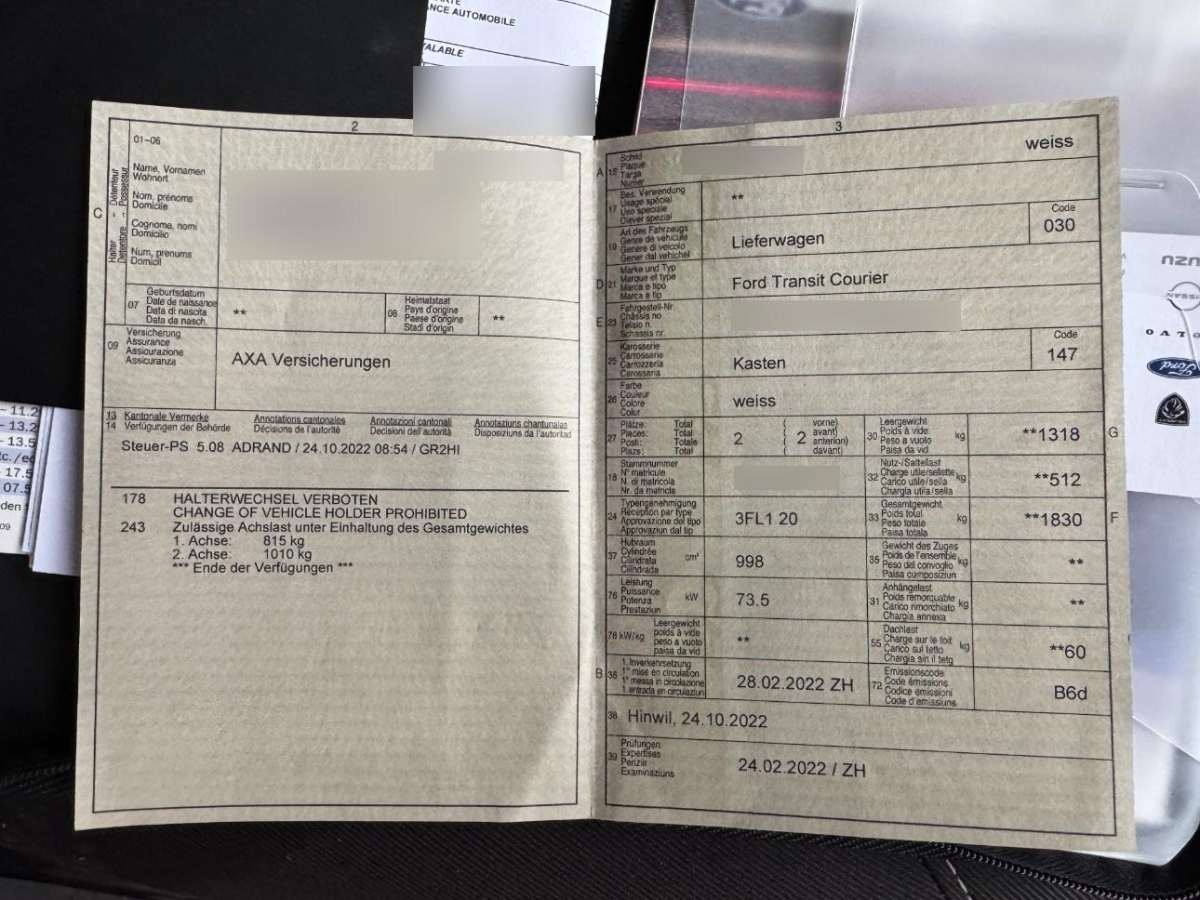 NCE AUTOMOBILE
VALABLE
2
01-06
Détenteur
Possessur
Halter
Detentore
C
Name, Vornamen
Wohnort
Nom, prénoms
Domicile
Cognome, nomi
Domicilio
Num, prenums
Domicil
07
Geburtsdatum
Date de naissance
Data di nascita
Data da nasch.
**
08
Heimatstaat
Pays d'origine
Paese d'origine
Stadi d'origin
**
09
Versicherung
Assurance
Assicurazione
Assicuranza
AXA Versicherungen
13 Kantonale Vermerke
14 Verfügungen der Behörde
Annotations cantonales
Décisions de l'autorité
Annotazioni cantonali
Decisioni dell'autorità
Annotaziuns chantunalas
Disposiziuns da l'autoritad
Steuer-PS 5.08 ADRAND / 24.10.2022 08:54 / GR2HI
178 HALTERWECHSEL VERBOTEN
CHANGE OF VEHICLE HOLDER PROHIBITED
243 Zulässige Achslast unter Einhaltung des Gesamtgewichtes
1. Achse: 815 kg
2. Achse: 1010 kg
*** Ende der Verfügungen ***
3
A 15
Schild
Plaque
Targa
Numer
weiss
17
Bes. Verwendung
Usage spécial
Uso speciale
Diever spezial
**
19
Art des Fahrzeugs
Genre de véhicule
Genere di veicolo
Gener dal vehichel
Lieferwagen
Code
030
D 21
Marke und Typ
Marque et type
Marca e tipo
Marca e tip
Ford Transit Courier
E 23
Fahrgestell-Nr.
Châssis no
Telaio n.
Schassis nr.
25
Karosserie
Carrosserie
Carrozzeria
Carossaria
Kasten
Code
147
26
Farbe
Couleur
Colore
Colur
weiss
27
Plätze: Total
Places: Total
Posti: Totale
Plazs: Total
2
( vorne)
( 2 avant)
( anteriori)
( davant)
30
Leergewicht
Poids à vide
Peso a vuoto
Paisa da vid
kg
**1318
G
18
Stammnummer
N° matricule
N. di matricola
Nr. da matricla
32
Nutz-/Sattellast
Charge utile/sellette
Carico utile/sella
Chargia utila/sella
kg
**512
24
Typengenehmigung
Réception par type
Approvazione del tipo
Approvaziun dal tip
3FL1 20
33
Gesamtgewicht
Poids total
Peso totale
Paisa totala
kg
**1830
F
37
Hubraum
Cylindrée
Cilindrata
Cilindrada
cm³
998
35
Gewicht des Zuges
Poids de l'ensemble
Peso del convoglio
Paisa cumposiziun
kg
**
76
Leistung
Puissance
Potenza
Prestaziun
kW
73.5
31
Anhängelast
Poids remorquable
Carico rimorchiato
Chargia annexa
kg
**
78 kW/kg
Leergewicht
poids à vide
peso a vuoto
paisa da vid
**
55
Dachlast
Charge sur le toit
Carico sul tetto
Chargia sin il tetg
kg
**60
B 36
1. Inverkehrsetzung
1re mise en circulation
1a messa in circolazione
1. entrada en circulaziun
28.02.2022 ZH
72
Emissionscode
Code émissions
Codice emissioni
Code d'emissiuns
B6d
38 Hinwil, 24.10.2022
39
Prüfungen
Expertises
Perizie
Examinaziuns
24.02.2022 / ZH
Ford